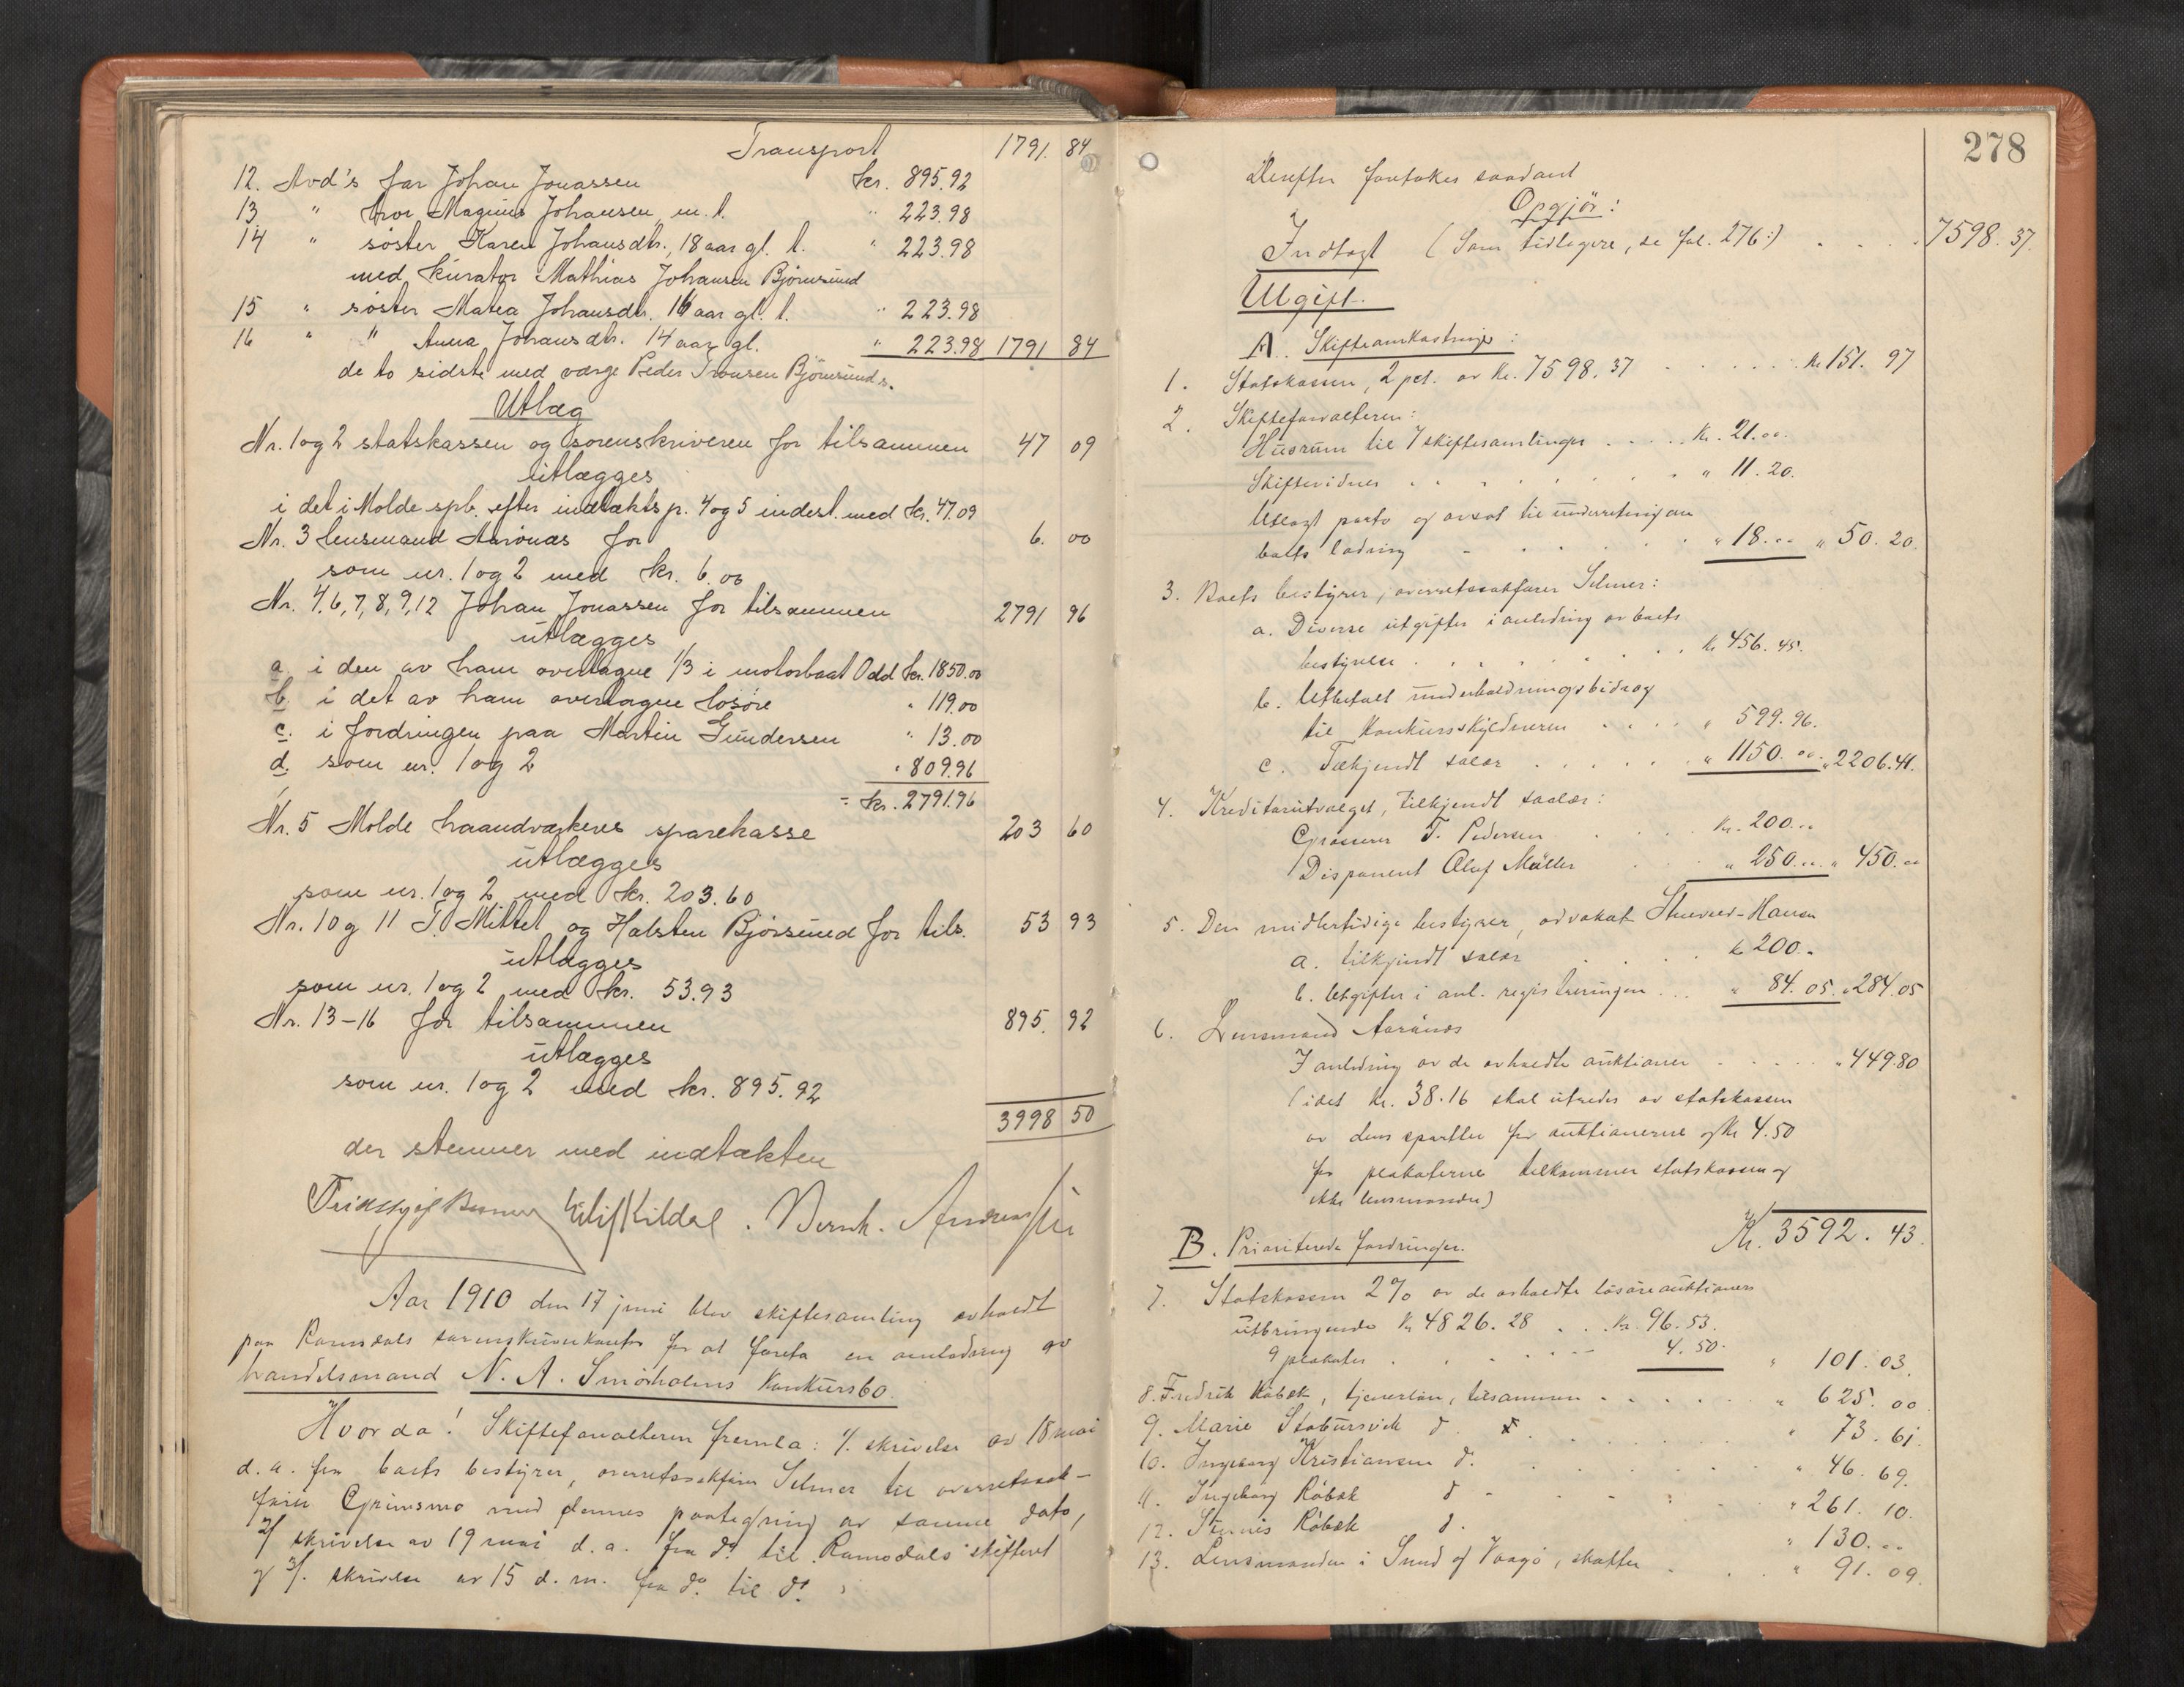 Transport 1791. 84
12. Avd's far Johan Jonassen kr. 895.92
13 " bror Magnus Johansen m. l. " 223.98
14 " söster Karen Johansdtr., 18 aar gl. l. " 223.98
med kurator Mathias Johansen Björnsund
15 " söster Matea Johansdtr. 16 aar gl. l. " 223.98
16 " " Anna Johansdtr. 14 aar gl. " 223.98 1791 84
de to sidste med værge Peder Iversen Björnsund.
Utlæg
Nr. 1 og 2 statskassen og sorenskriveren for tilsammen 47 09
utlægges
i det i Molde spb. efter indtækts p. 4 og 5 indest. med kr. 47.09
Nr. 3 lensmand Aarönæs for 6. 00
som nr. 1 og 2 med kr. 6.00
Nr. 4, 6, 7, 8, 9, 12 Johan Jonassen for tilsammen 2791 96
utlægges
a. i den av ham overtagne 1/3 i motorbaat Odd kr. 1850.00
b. i det av ham overtagne lösöre " 119.00
c. i fordringen paa Martin Gundersen " 13.00
d. som nr. 1 og 2 " 809.96
= kr. 2791.96
Nr. 5 Molde haandverkeres sparekasse 203 60
utlægges
som nr. 1 og 2 med kr. 203.60
Nr. 10 og 11 T. Mittet og Halsten Bjørsund for tils. 53 93
utlægges
som nr. 1 og 2 med kr. 53.93
Nr. 13-16 for tilsammen 895. 92
utlægges
som nr. 1 og 2 med kr. 895.92
3998 50
der stemmer med indtækten
Eilif Kildal. Bernh. Andreassen
Aar 1910 den 17 juni blev skiftesamling avholdt
paa Romsdals sorenskriverkontor for at foreta en avslutning av
handelsmand N. A. Smörholms konkursbo.
Hvorda! Skifteforvalteren fremla: 1/. skrivelse av 18 mai
d. a. fra boets bestyrer, overretssakfører Selmer til overretssak-
fører Grimsmo med dennes paategning av samme dato,
2/ skrivelse av 19 mai d. a. fra do. til Romsdals skifteret
og 3/. skrivelse av 15 d. m. fra do. til do.
278
Derefter foretokes saadant
Opgjör:
Indtægt (Som tidligere, se fol. 276:) . . . . 7598. 37.
Utgift.
A. Skifteomkostninger:
1. Statskassen, 2 pct. av kr. 7598.37 . . . . . kr 151. 97
2. Skifteforvalteren:
Husrum til 7 skiftesamlinger . . . . . kr. 21.00.
Skiftevidner . . . . . . . " 11.20.
Utlagt porto og avsat til underretning om
boets lodning - . . . . . " 18.00 " 50.20.
3. Boets bestyrer, overretssakfører Selmer:
a. Diverse utgifter i anledning av boets
bestyrelse . . . . . . . kr 456.45.
b. Utbetalt underholdningsbidrag
til konkursskyldneren . . . . " 599.96.
c. Tilkjendt salær . . . . . . " 1150.00. " 2206.41.
4. Kreditorutvalget, tilkjendt salær:
Grosserer T. Pedersen . . . kr. 200.00
Disponent Oluf Müller . . " 250.00 " 450.00
5. Den midlertidige bestyrer, advokat Stuevold-Hansen
a. tilkjendt salær . . . . kr 200.-
b. Utgifter i anl. registreringen . . . " 84.05. " 284.05
6. Lensmand Aarönæs
I anledning av de avholdte auktioner . . . . . " 449.80
(idet kr. 38.16 skal utredes av statskassen
av dens sportler for auktionerne og kr 4.50
for plakaterne tilkommer statskassen og
ikke lensmanden)
Kr. 3592. 43.
B. Prioriterede fordringer.
7. Statskassen 2% av de avholdte lösöreauktioners
utbringende kr 4826.28 . . . kr. 96.53.
9 plakater . . . . . . 4.50. " 101.03.
8. Fredrik Röbæk, tjenerlön, tilsammen . . . . . . " 625.00
9. Marie Stobursvik do. . . . . . . " 73.61.
10. Ingeborg Kristiansen do. . . . . . " 46.69.
11. Ingeborg Röbæk do. - . . . . " 261.10.
12. Röbæk do. " 130.00
13. Lensmanden i Sund og Vaagö, skatter . . . " 91.09.